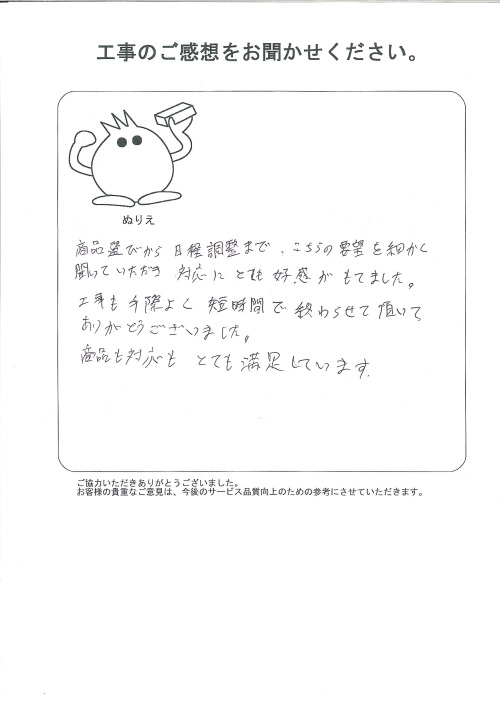 工事のご感想をお聞かせください。
ぬりえ
商品選びから 日程調整まで、こちらの要望を細かく
聞いていただき 対応に とても 好感が もてました。
工事も 手際よく 短時間で 終わらせて 頂いて
ありがとうございました。
商品も対応も とても 満足しています。
ご協力いただきありがとうございました。
お客様の貴重なご意見は、今後のサービス品質向上のための参考にさせていただきます。